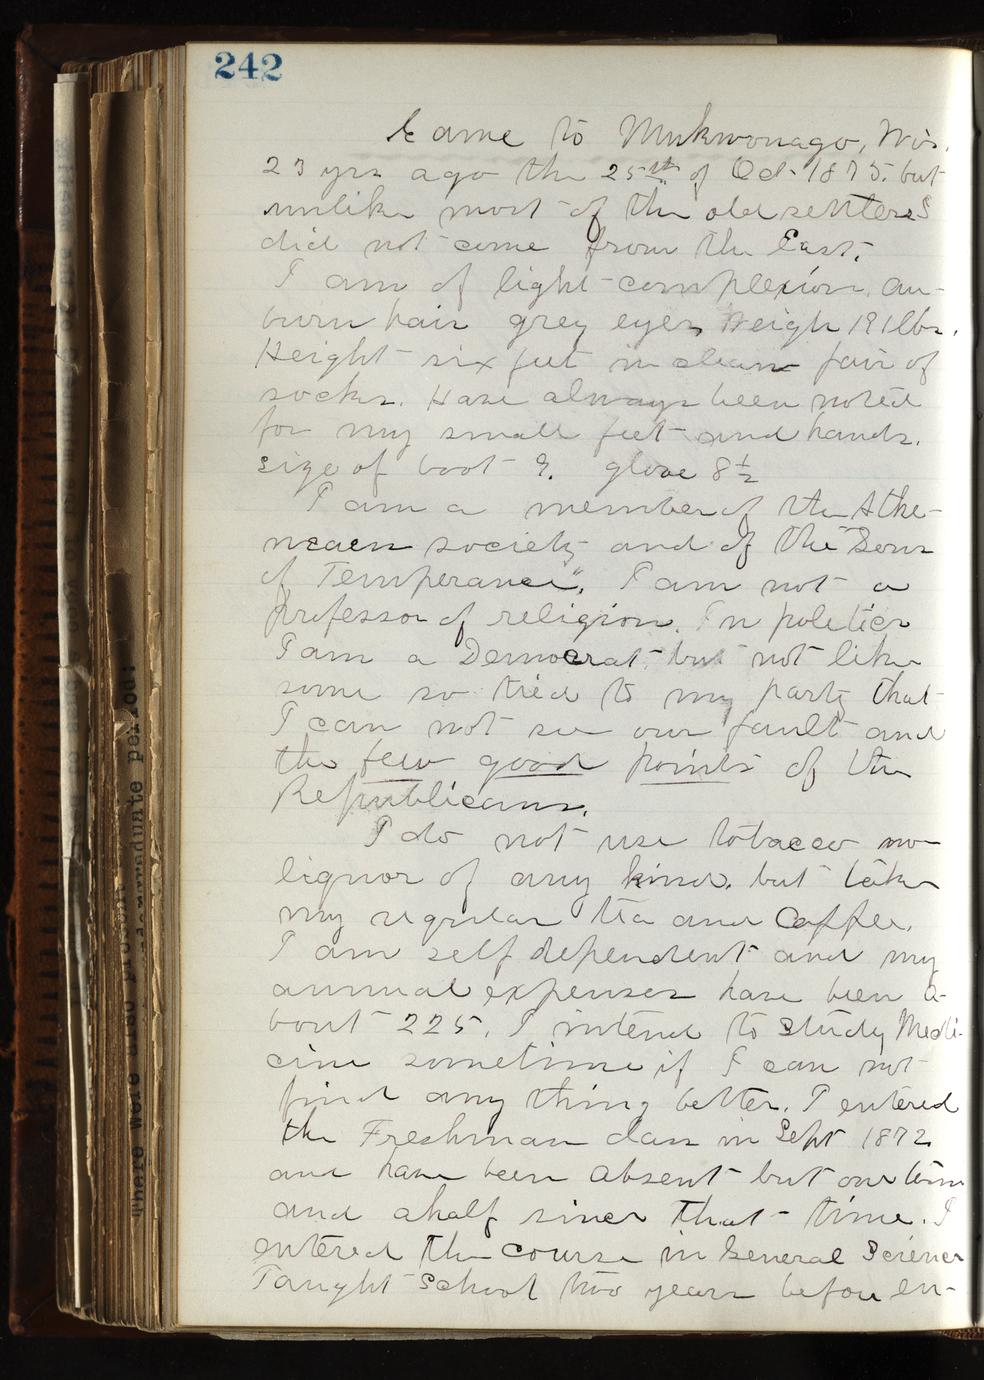 242
Came to Mukwonago, Wis.
23 yrs ago the 25th of Oct. 1875. but
unlike most of the old settlers I
did not come from the East.
I am of light complexion, au-
burn hair grey eyes, Weigh 191 lbs.
Height six feet in clean pair of
socks. Have always been noted
for my small feet and hands.
Size of boot 9. glove 8½
I am a member of the Athe-
neaen society and of the "Sons
of Temperance". I am not a
professor of religion. In politics
I am a Democrat but not like
some so tied to my party that
I can not see our fault and
the few good points of the
Republicans.
I do not use tobacco no
liquor of any kind. but take
my regular tea and Coffee.
I am self dependent and my
annual expenses have been a-
bout 225. I intend to Study Medi-
cine sometime if I can not
find any thing better. I entered
the Freshman class in Sept 1872
and have been absent but one term
and a half since that time. I
entered the course in General Science
Taught School two years before en-
There were also
undergraduate period: